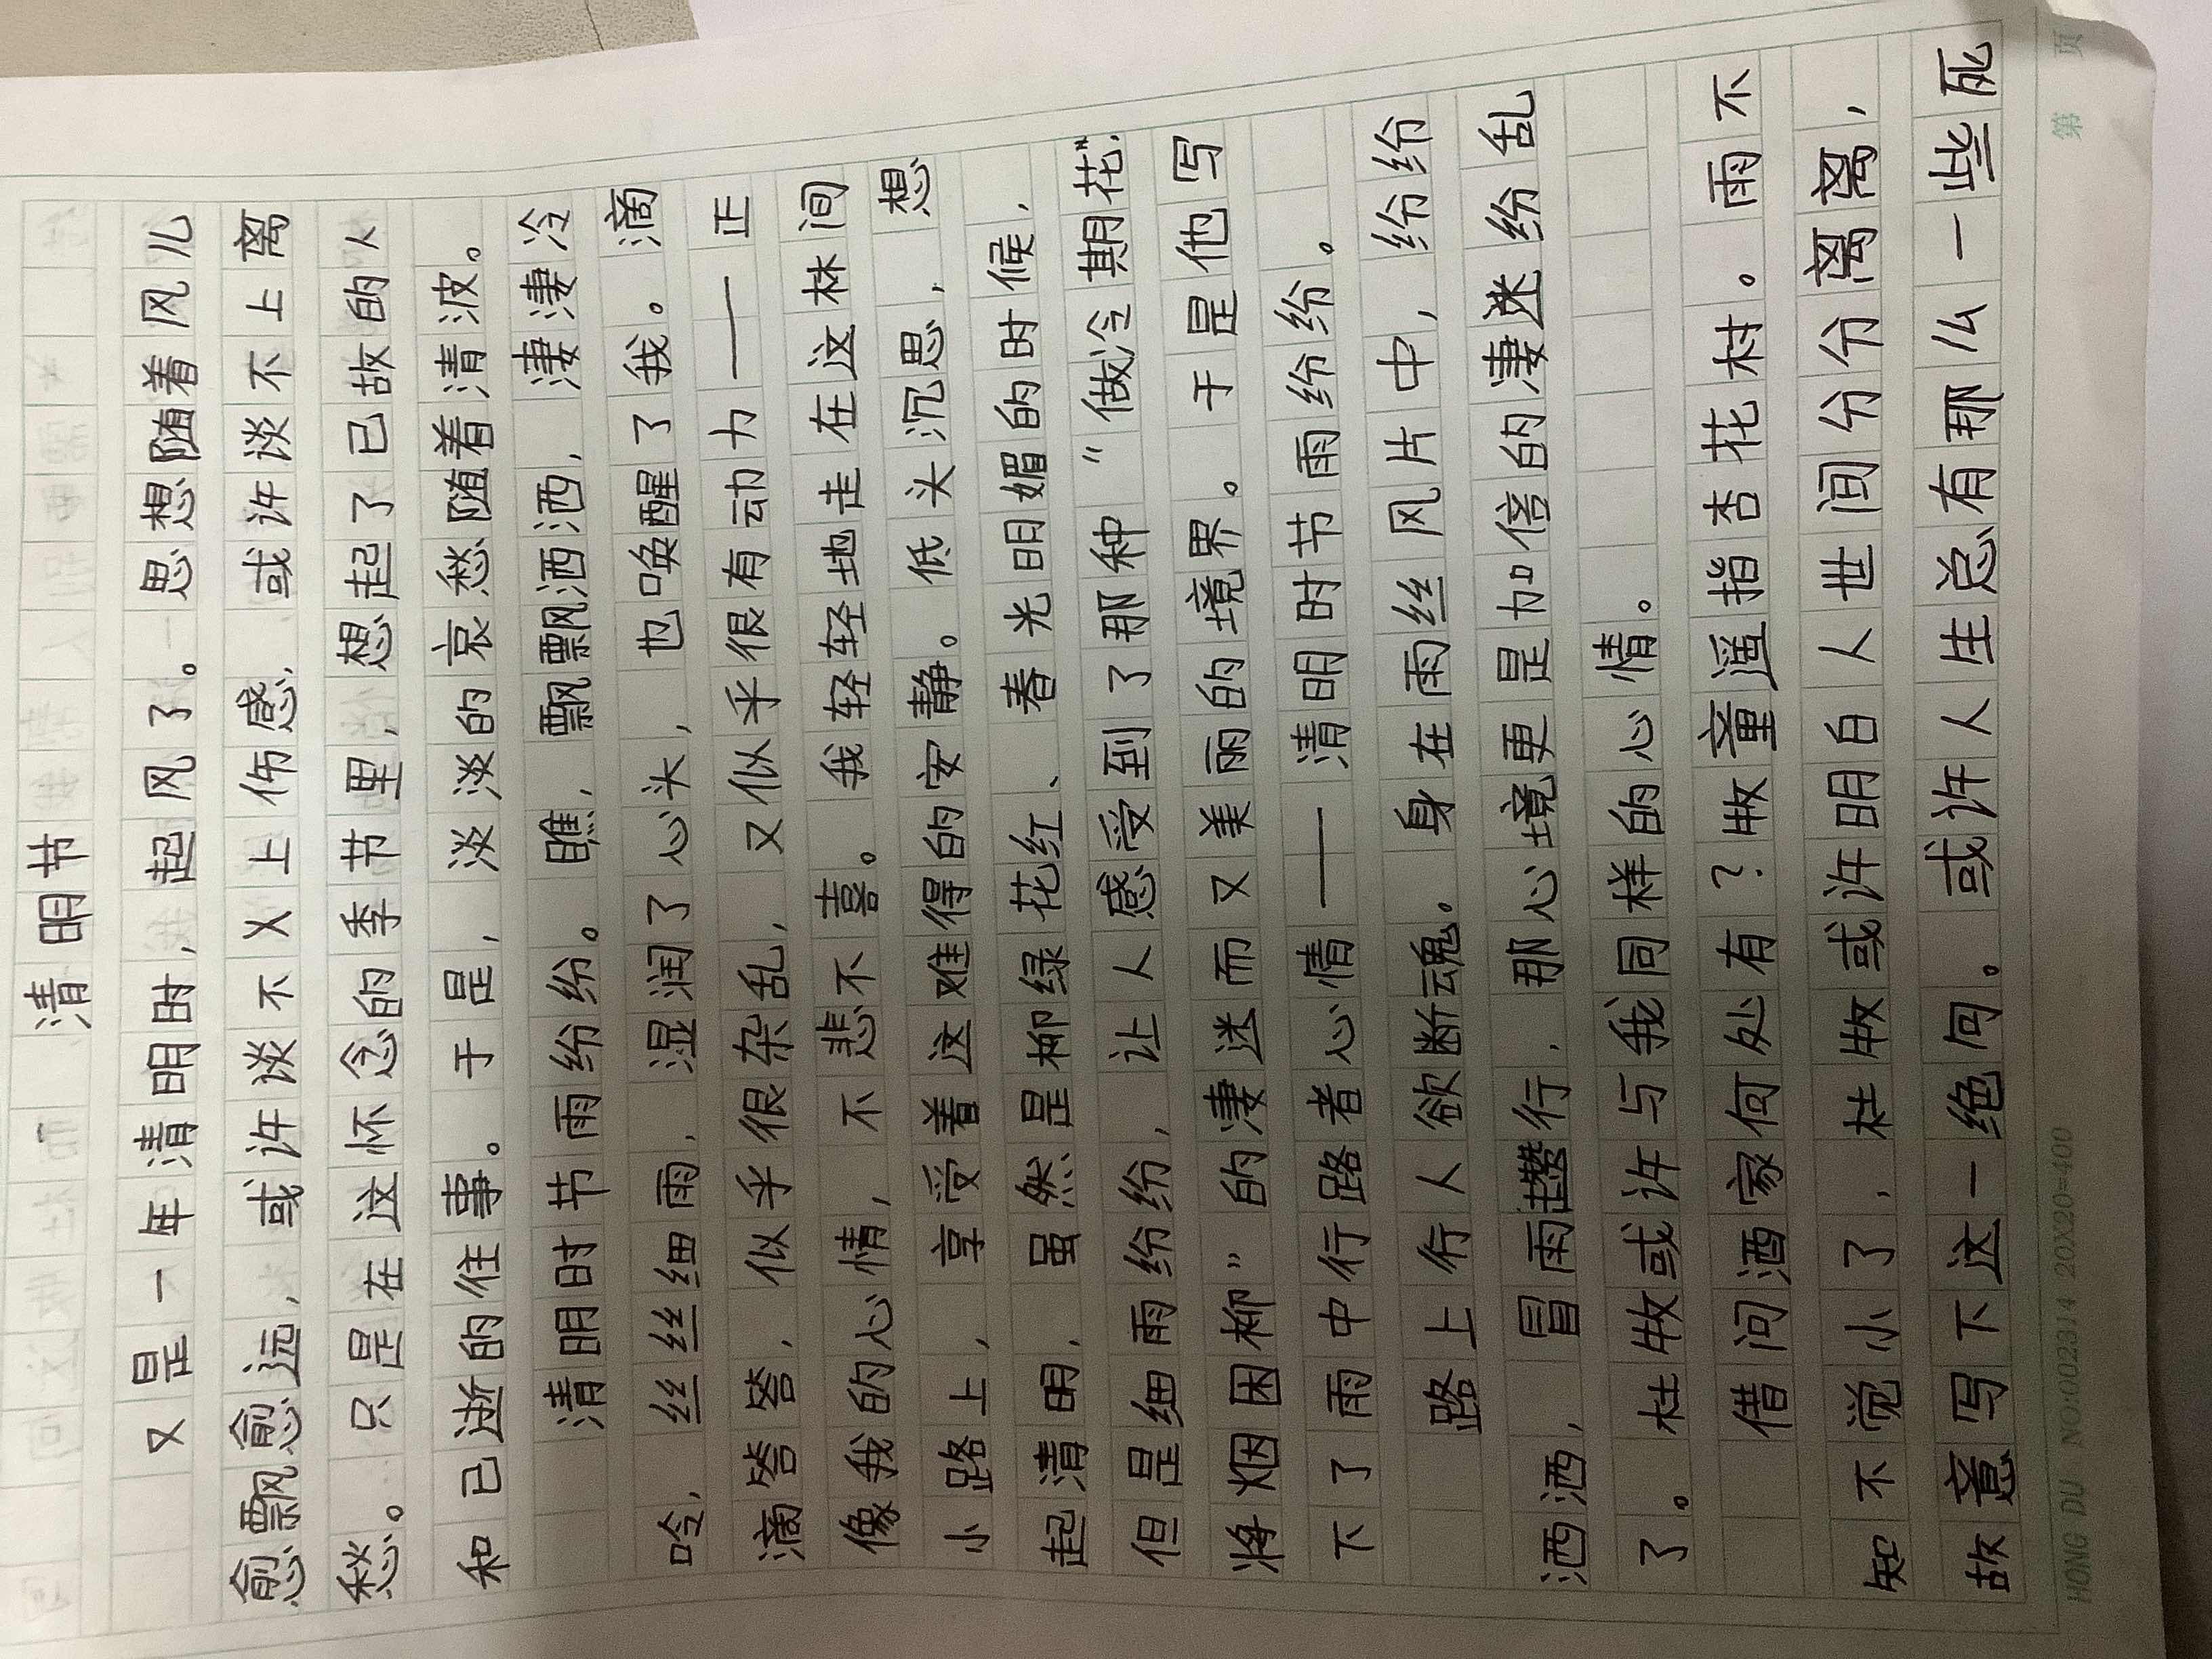 清明节
又是一年清明时，起风了。思想随着风儿
愈飘愈远，或许谈不上伤感，或许谈不上离
愁。只是在这怀念的季节里，想起了已故的人
和已逝的往事。于是，淡淡的哀愁随着清波。
清明时节雨纷纷。瞧，飘飘洒洒，凄凄冷
冷，丝丝细雨，湿润了心头，也唤醒了我。滴
滴答答，似乎很杂乱，又似乎很有动力——正
像我的心情，不悲不喜。我轻轻地走在这林间
小路上，享受着这难得的安静。低头沉思，想
起清明，虽然是柳绿花红、春光明媚的时候，
但是细雨纷纷，让人感受到了那种“做冷期花”，
将烟困柳”的凄迷而又美丽的境界。于是他写
下了雨中行路者心情——清明时节雨纷纷。
路上行人欲断魂。身在雨丝风片中，纷纷
洒洒，冒雨趱行，那心境更是加倍的凄迷纷乱
了。杜牧或许与我同样的心情。
借问酒家何处有？牧童遥指杏花村。雨不
知不觉小了，杜牧或许明白人世间分分离离，
故意写下这一绝句。或许人生总有那么一些死
第 页
HONG DU NO:002314 20X20=400